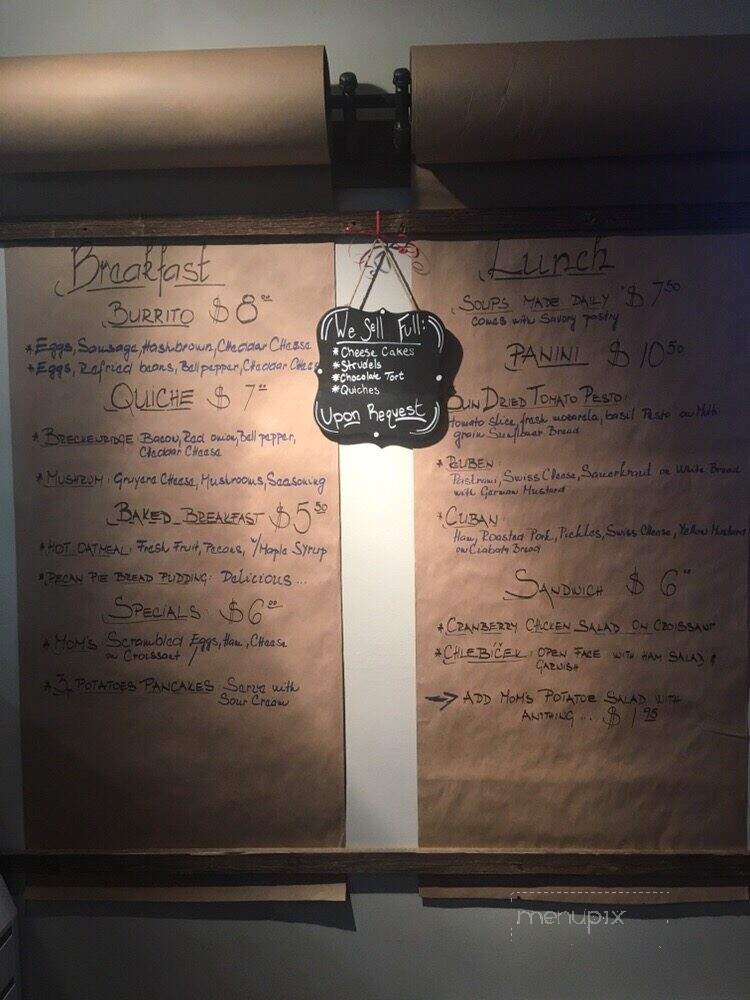 Breakfast
BURRITO $8⁰⁰
*Eggs, Sausage, Hashbrown, Cheddar Cheese
*Eggs, Refried beans, Bell pepper, Cheddar Chees
QUICHE $7⁰⁰
*BRECKENRIDGE: Bacon, Red onion, Bell pepper,
Cheddar Cheese
*MUSHRUM: Gruyere Cheese, Mushrooms, Seasoning
BAKED BREAKFAST $5⁵⁰
*HOT OATMEAL: Fresh Fruit, Pecans, w/Maple Syrup
*PECAN PIE BREAD PUDDING: Delicious...
SPECIALS $6⁰⁰
*MOM'S: Scrambled Eggs, Ham, Cheese
on Croissant
*3 POTATOES PANCAKES: Serve with
Sour Cream
We Sell Full:
*Cheese Cakes
*Strudels
*Chocolate Tort
*Quiches
Upon Request
Lunch
SOUPS MADE DAILY $7⁵⁰
comes with Savory pastry
PANINI $10⁵⁰
SUN DRIED TOMATO PESTO:
Tomato slice, fresh mozerela, basil Pesto on Multi
grain Sunflower Bread
*REUBEN:
Pastrami, Swiss Cheese, Sauerkraut on White Bread
with German Mustard
*CUBAN:
Ham, Roasted Pork, Pickles, Swiss Cheese, Yellow Mustard
on Ciabata Bread
SANDWICH $6⁰⁰
*CRANBERRY CHICKEN SALAD ON CROISSANT
*CHLEBÍČEK: OPEN FACE WITH HAM SALAD &
GARNISH
→ ADD MOM'S POTATOE SALAD WITH
ANYTHING... $1⁹⁵
menupix